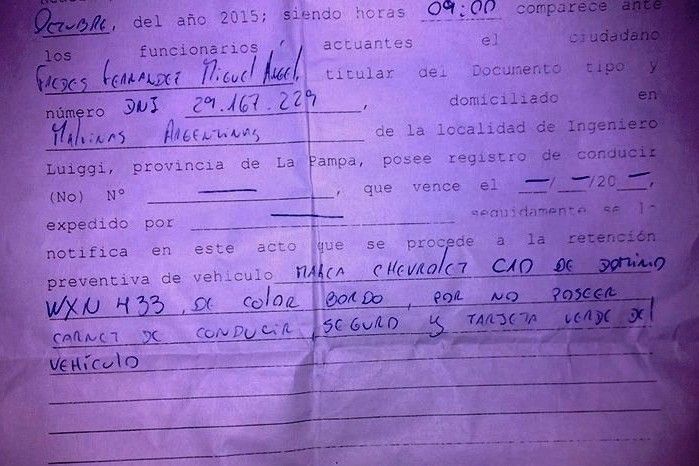 Octubre, del año 2015; siendo horas 09:00 comparece ante
los funcionarios actuantes el ciudadano
Fernandez Miguel Angel, titular del Documento tipo y
número DNI 29.167.229, domiciliado en
Malvinas Argentinas de la localidad de Ingeniero
Luiggi, provincia de La Pampa, posee registro de conducir
(No) Nº —, que vence el —/—/20—,
expedido por — seguidamente se le
notifica en este acto que se procede a la retención
preventiva de vehiculo MARCA CHEVROLET DE DOMINIO
WXN 433, DE COLOR BORDO, POR NO POSEER
CARNET DE CONDUCIR, SEGURO Y TARJETA VERDE DEL
VEHÍCULO